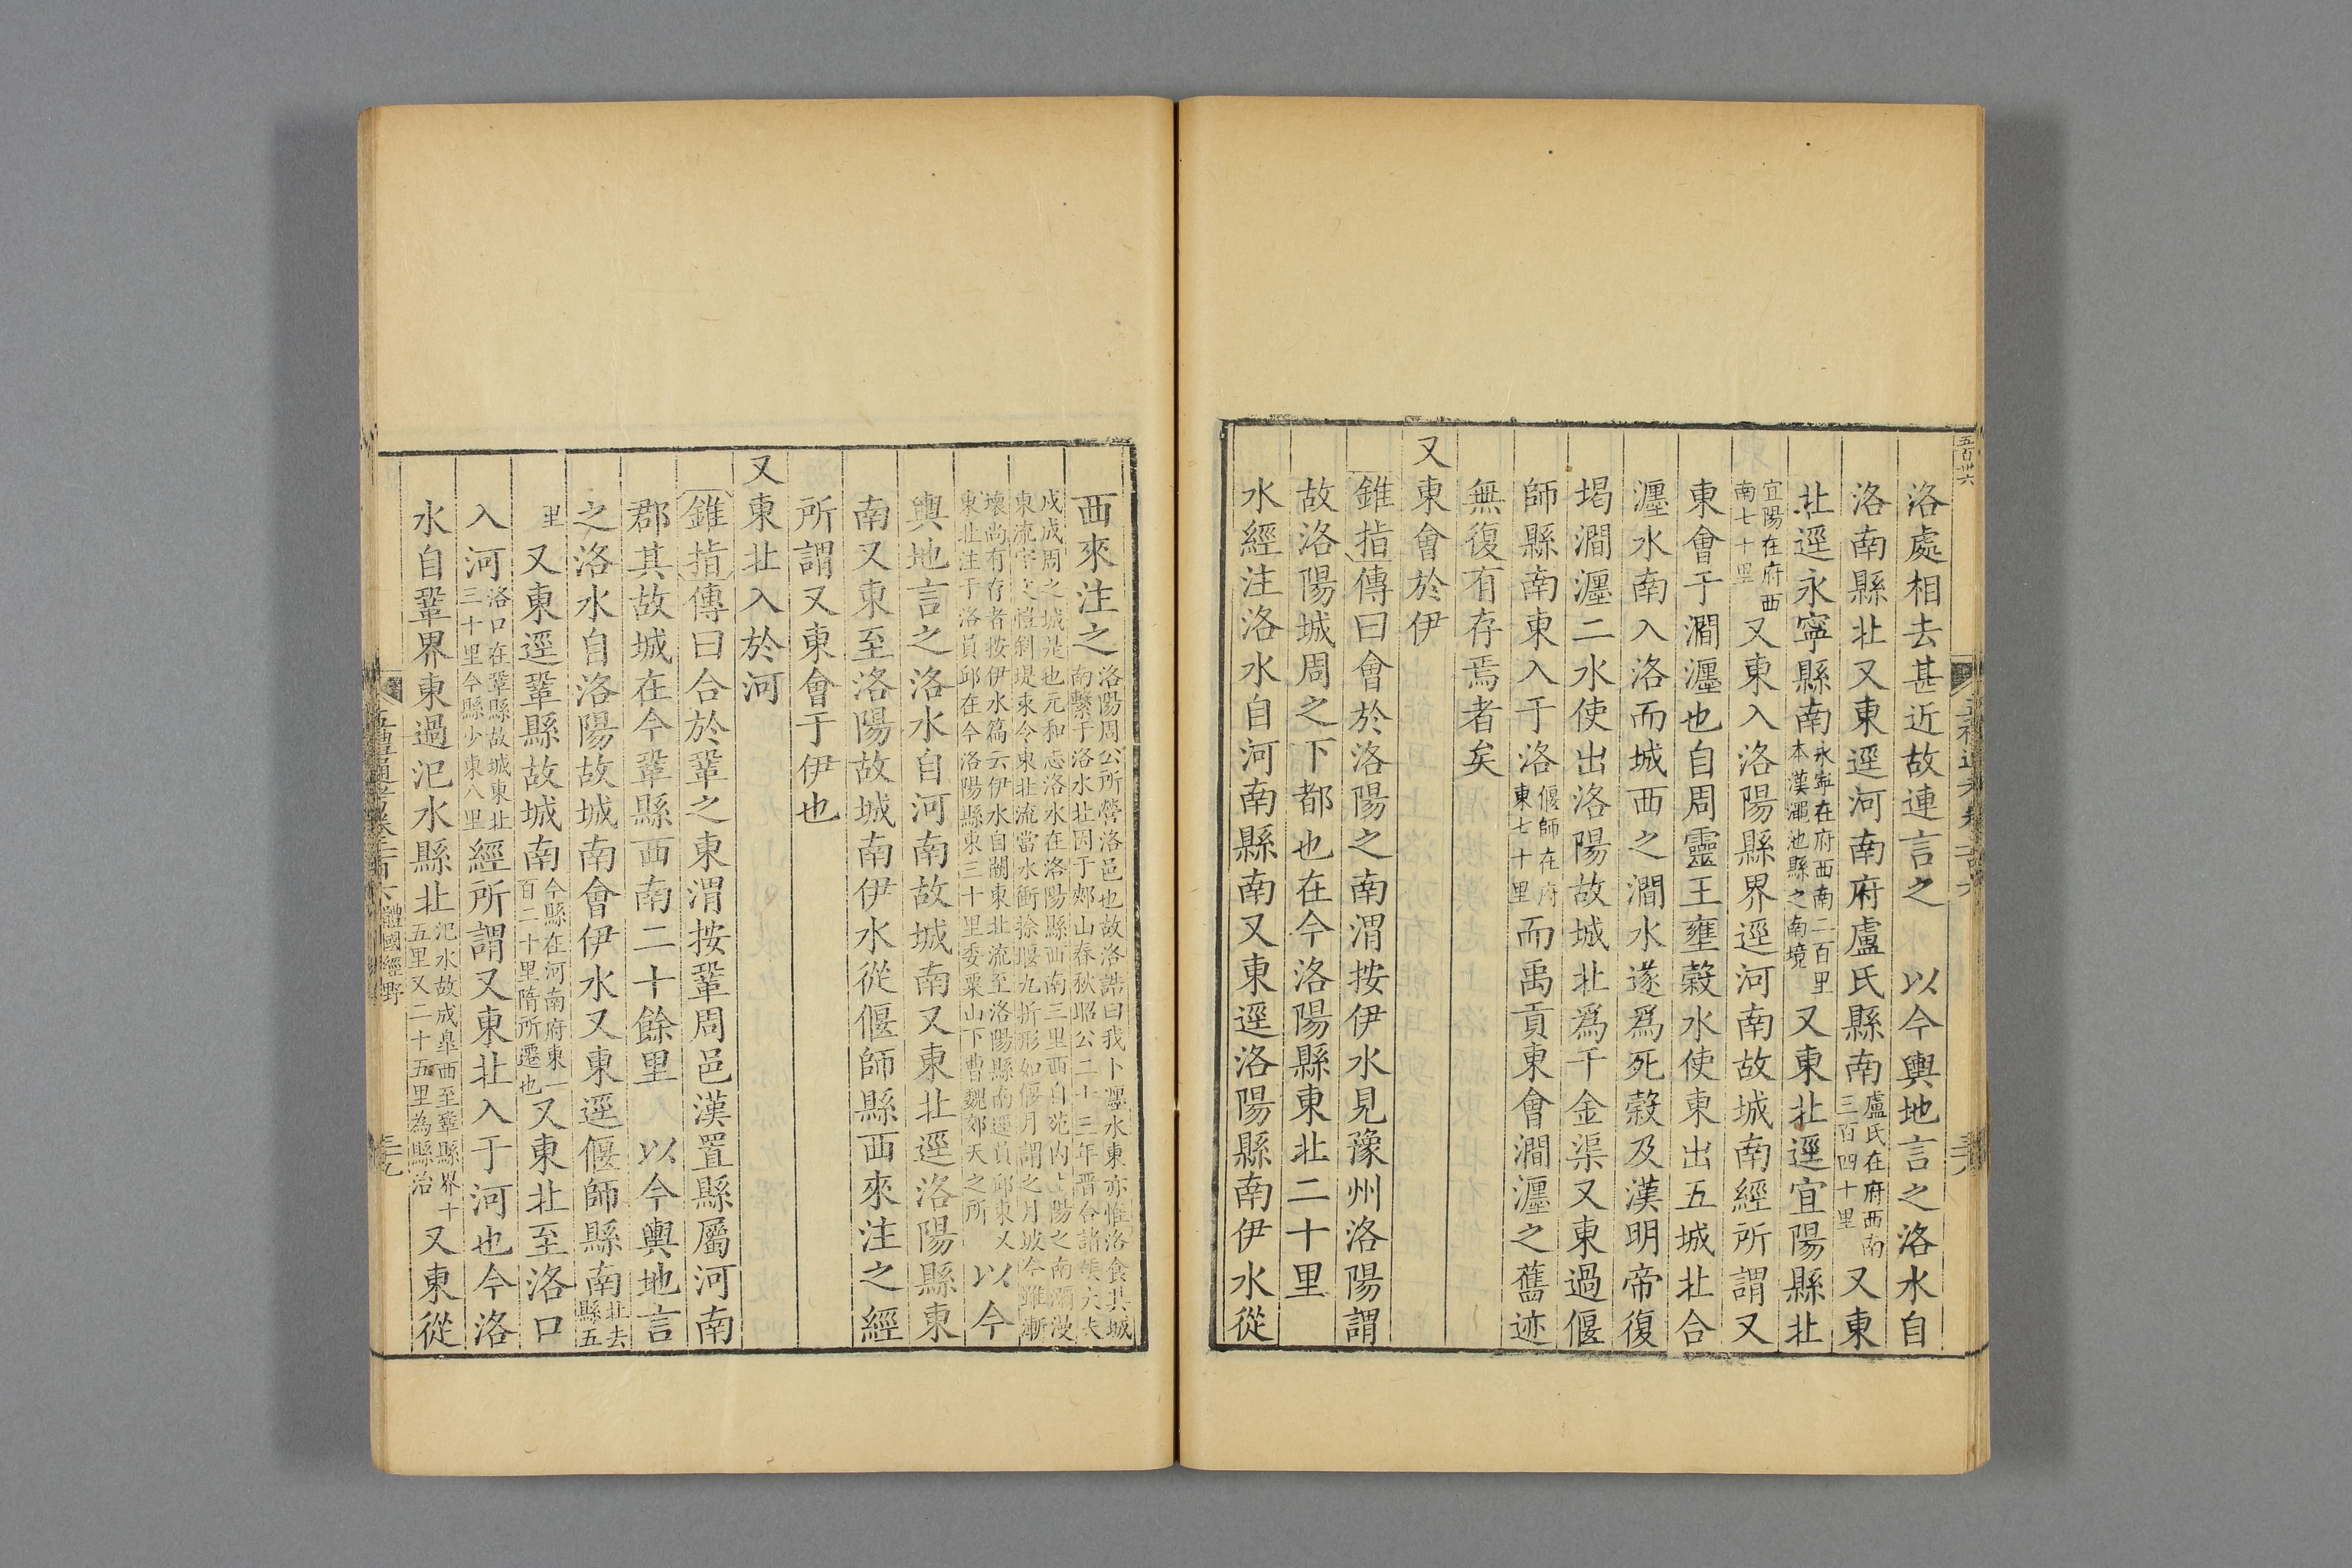 五百卅六
洛處相去甚近故連言之 以今輿地言之洛水自
洛南縣北又東逕河南府盧氏縣南盧氏在府西南三百四十里又東
北逕永寧縣南永寧在府西南二百里本漢澠池縣之南境又東北逕宜陽縣北
宜陽在府西南七十里又東入洛陽縣界逕河南故城南經所謂又
東會于澗瀍也自周靈王壅穀水使東出五城北合
瀍水南入洛而城西之澗水遂為死穀及漢明帝復
堨澗瀍二水使出洛陽故城北為千金渠又東過偃
師縣南東入于洛偃師在府東七十里而禹貢東會澗瀍之舊迹
無復有存焉者矣
又東會於伊
錐指傳曰會於洛陽之南渭按伊水見豫州洛陽謂
故洛陽城周之下都也在今洛陽縣東北二十里
水經注洛水自河南縣南又東逕洛陽縣南伊水從
西來注之洛陽周公所營洛邑也故洛誥曰我卜瀍水東亦惟洛食其城南繫于洛水北因于郟山春秋昭公二十三年晉合諸侯大夫
戍成周之城是也元和志洛水在洛陽縣西南三里西自苑內上陽之南瀰漫東流宇文愷斜堤束令東北流當水衝捺堰九折形如偃月謂之月坡今雖漸
壞尚有存者按伊水篇云伊水自闕東北流至洛陽縣南逕員邱東又東北注于洛員邱在今洛陽縣東三十里委粟山下曹魏郊天之所以今
輿地言之洛水自河南故城南又東北逕洛陽縣東
南又東至洛陽故城南伊水從偃師縣西來注之經
所謂又東會于伊也
又東北入於河
錐指傳曰合於鞏之東渭按鞏周邑漢置縣屬河南
郡其故城在今鞏縣西南二十餘里 以今輿地言
之洛水自洛陽故城南會伊水又東逕偃師縣南北去縣五
里又東逕鞏縣故城南今縣在河南府東一百二十里隋所遷也又東北至洛口
入河洛口在鞏縣故城東北三十里今縣少東八里經所謂又東北入于河也今洛
水自鞏界東過汜水縣北汜水故成皋西至鞏縣界十五里又二十五里為縣治又東從
五禮通考卷二百六 體國經野 三十九